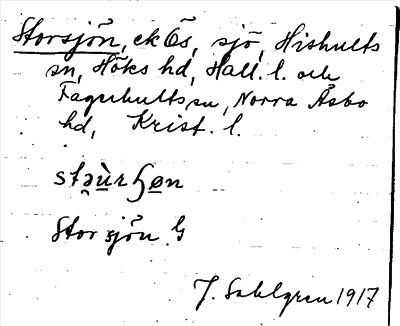 Storsjön, ekÖs, sjö, Hishults
sn, Höks hd, Hall. l. och
Fagerhults sn, Norra Åsbo
hd, Krist. l.
stə̯ùrɧøn
Storsjön G
J. Sahlgren 1917